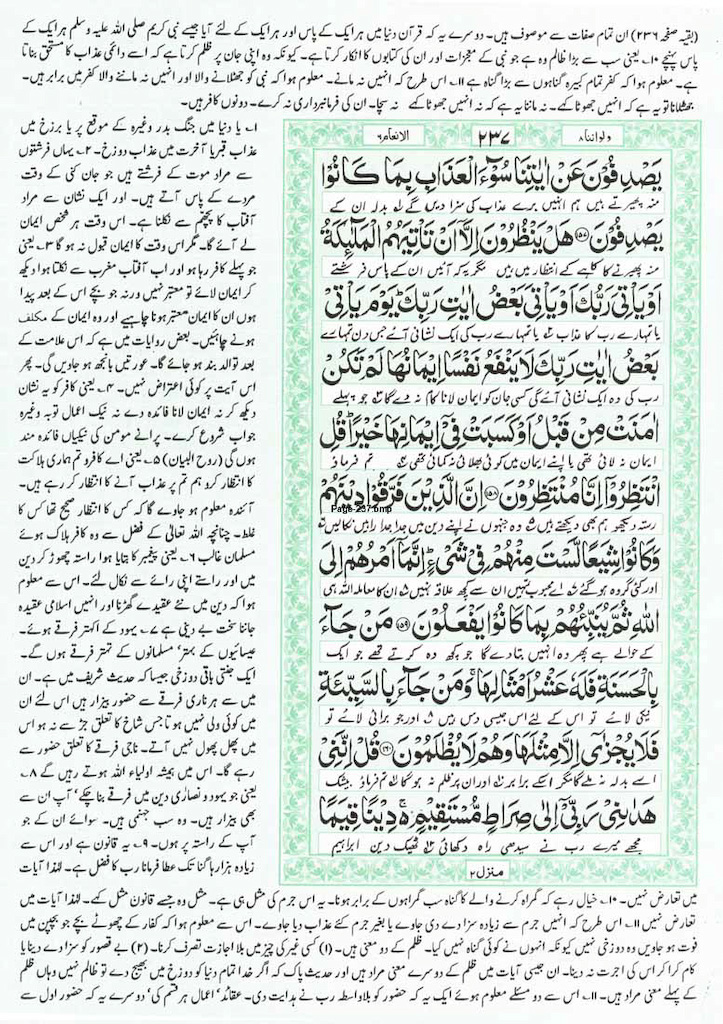 (بقیہ صفحہ ۲۳۶) ان تمام صفات سے موصوف ہیں۔ دوسرے یہ کہ قرآن دنیا میں ہر ایک کے پاس اور ہر ایک کے لئے آیا جیسے نبی کریم صلی اللہ علیہ وسلم ہر ایک کے
پاس پہنچے ۱۰۔ یعنی سب سے بڑا ظالم وہ ہے جو نبی کے معجزات اور ان کی کتابوں کا انکار کرتا ہے۔ کیونکہ وہ اپنی جان پر ظلم کرتا ہے کہ اسے دائمی عذاب کا مستحق بناتا
ہے۔ معلوم ہوا کہ کفر تمام کبیرہ گناہوں سے بڑا گناہ ہے ۱۱۔ اس طرح کہ انہیں نہ مانے۔ معلوم ہوا کہ نبی کو جھٹلانے والا اور انہیں نہ ماننے والا کفر میں برابر ہیں۔
جھٹلانا تو یہ ہے کہ انہیں جھوٹا کہے۔ نہ ماننا یہ ہے کہ نہ انہیں جھوٹا کہے نہ سچا۔ ان کی فرمانبرداری نہ کرے۔ دونوں کافر ہیں۔
ولواننا ۸
۲۳۷
الانعام ۶
يَصْدِفُوْنَ عَنْ اٰيٰتِنَا سُوْٓءَ الْعَذَابِ بِمَا كَانُوْا
منہ پھیرتے ہیں ہم انہیں برے عذاب کی سزا دیں گے بدلہ ان کے
يَصْدِفُوْنَ ۝۱۵۷ هَلْ يَنْظُرُوْنَ اِلَّاۤ اَنْ تَاْتِيَهُمُ الْمَلٰٓئِكَةُ
منہ پھیرنے کا کاہے کے انتظار میں ہیں مگر یہ کہ آئیں ان کے پاس فرشتے
اَوْ يَاْتِيَ رَبُّكَ اَوْ يَاْتِيَ بَعْضُ اٰيٰتِ رَبِّكَ ؕ يَوْمَ يَاْتِيْ
یا تمہارے رب کا عذاب یا تمہارے رب کی ایک نشانی آئے جس دن تمہارے
بَعْضُ اٰيٰتِ رَبِّكَ لَا يَنْفَعُ نَفْسًا اِيْمَانُهَا لَمْ تَكُنْ
رب کی وہ ایک نشانی آئے گی کسی جان کو ایمان لانا کام نہ دے گا جو پہلے
اٰمَنَتْ مِنْ قَبْلُ اَوْ كَسَبَتْ فِيْۤ اِيْمَانِهَا خَيْرًا ؕ قُلِ
ایمان نہ لائی تھی یا اپنے ایمان میں کوئی بھلائی نہ کمائی تھی تم فرماؤ
انْتَظِرُوْۤا اِنَّا مُنْتَظِرُوْنَ ۝۱۵۸ اِنَّ الَّذِيْنَ فَرَّقُوْا دِيْنَهُمْ
Page-237.bmp
رستہ دیکھو ہم بھی دیکھتے ہیں وہ جنہوں نے اپنے دین میں جدا جدا راہیں نکالیں
وَ كَانُوْا شِيَعًا لَّسْتَ مِنْهُمْ فِيْ شَيْءٍ ؕ اِنَّمَاۤ اَمْرُهُمْ اِلَى
اور کئی گروہ ہو گئے اے محبوب تمہیں ان سے کچھ علاقہ نہیں ان کا معاملہ اللہ ہی
اللّٰهِ ثُمَّ يُنَبِّئُهُمْ بِمَا كَانُوْا يَفْعَلُوْنَ ۝۱۵۹ مَنْ جَآءَ
کے حوالے ہے پھر وہ انہیں بتا دے گا جو کچھ وہ کرتے تھے جو ایک
بِالْحَسَنَةِ فَلَهٗ عَشْرُ اَمْثَالِهَا ۚ وَ مَنْ جَآءَ بِالسَّيِّئَةِ
نیکی لائے تو اس کے لئے اس جیسی دس ہیں اور جو برائی لائے تو
فَلَا يُجْزٰۤى اِلَّا مِثْلَهَا وَ هُمْ لَا يُظْلَمُوْنَ ۝۱۶۰ قُلْ اِنَّنِيْ
اسے بدلہ نہ ملے گا مگر اس کے برابر اور ان پر ظلم نہ ہو گا تم فرماؤ بیشک
هَدٰىنِيْ رَبِّيْۤ اِلٰى صِرَاطٍ مُّسْتَقِيْمٍ ۚ۬ دِيْنًا قِيَمًا
مجھے میرے رب نے سیدھی راہ دکھائی ٹھیک دین ابراہیم
منزل ۲
۱۔ یا دنیا میں جنگ بدر وغیرہ کے موقع پر یا برزخ میں
عذاب قبر یا آخرت میں عذاب دوزخ۔ ۲۔ یہاں فرشتوں
سے مراد موت کے فرشتے ہیں جو جان کنی کے وقت
مردے کے پاس آتے ہیں۔ اور ایک نشان سے مراد
آفتاب کا پچھم سے نکلنا ہے۔ اس وقت ہر شخص ایمان
لے آئے گا۔ مگر اس وقت کا ایمان قبول نہ ہو گا ۳۔ یعنی
جو پہلے کافر رہا ہو اور اب آفتاب مغرب سے نکلتا ہوا دیکھ
کر ایمان لائے تو معتبر نہیں ورنہ جو بچے اس کے بعد پیدا
ہوں ان کا ایمان معتبر ہونا چاہیے اور وہ ایمان کے مکلف
ہونے چاہئیں۔ بعض روایات میں ہے کہ اس علامت کے
بعد توالد بند ہو جائے گا۔ عورتیں بانجھ ہو جاویں گی۔ پھر
اس آیت پر کوئی اعتراض نہیں۔ ۴۔ یعنی کافر کو یہ نشان
دیکھ کر نہ ایمان لانا فائدہ دے نہ نیک اعمال توبہ وغیرہ
جواب شروع کرے۔ پرانے مومن کی نیکیاں فائدہ مند
ہوں گی (روح البیان) ۵۔ یعنی اے کافرو تم ہماری ہلاکت
کا انتظار کرو ہم تم پر عذاب آنے کا انتظار کر رہے ہیں۔
آئندہ معلوم ہو جاوے گا کہ کس کا انتظار صحیح تھا کس کا
غلط۔ چنانچہ اللہ تعالیٰ کے فضل سے وہ کافر ہلاک ہوئے
مسلمان غالب ۶۔ یعنی پیغمبر کا بتایا ہوا راستہ چھوڑ کر دین
میں اور راستے اپنی رائے سے نکال لئے۔ اس سے معلوم
ہوا کہ دین میں نئے عقیدے گھڑنا اور انہیں اسلامی عقیدہ
جاننا سخت بے دینی ہے ۷۔ یہود کے اکہتر فرقے ہوئے۔
عیسائیوں کے بہتر' مسلمانوں کے تہتر فرقے ہوں گے۔
ایک جنتی باقی دوزخی جیسا کہ حدیث شریف میں ہے۔ ان
میں سے ہر ناری فرقے سے حضور بیزار ہیں اس لئے ان
میں کوئی ولی نہیں ہوتا جس شاخ کا تعلق جڑ سے نہ ہو اس
میں پھل پھول نہیں آتے۔ ناجی فرقے کا تعلق حضور سے
رہے گا۔ اس میں ہمیشہ اولیاء اللہ ہوتے رہیں گے ۸۔
یعنی جو یہود و نصاریٰ دین میں فرقے بنا چکے' آپ ان سے
بھی بیزار ہیں۔ وہ سب جہنمی ہیں۔ سوائے ان کے جو
آپ کے راستہ پر ہوں۔ ۹۔ یہ قانون ہے اور اس سے
زیادہ ہزارہا گنا تک عطا فرمانا رب کا فضل ہے۔ لہٰذا آیات
میں تعارض نہیں۔ ۱۰۔ خیال رہے کہ گمراہ کرنے والے کا گناہ سب گمراہوں کے برابر ہونا۔ یہ اس جرم کی مثل ہی ہے۔ مثل وہ جسے قانون مثل کہے۔ لہٰذا آیات میں
تعارض نہیں ۱۱۔ اس طرح کہ انہیں جرم سے زیادہ سزا دے دی جاوے یا بغیر جرم کئے عذاب دیا جاوے۔ اس سے معلوم ہوا کہ کفار کے چھوٹے بچے جو بچپن میں
فوت ہو جاویں وہ دوزخی نہیں کیونکہ انہوں نے کوئی گناہ نہیں کیا۔ ظلم کے دو معنی ہیں۔ (۱) کسی غیر کی چیز میں بلا اجازت تصرف کرنا۔ (۲) بے قصور کو سزا دے دینا یا
کام کرا کر اس کی اجرت نہ دینا۔ ان جیسی آیات میں ظلم کے دوسرے معنی مراد ہیں اور حدیث پاک کہ اگر خدا تمام دنیا کو دوزخ میں بھیج دے تو ظالم نہیں وہاں ظلم
کے پہلے معنی مراد ہیں۔ ۱۱۔ اس سے دو مسئلے معلوم ہوئے ایک یہ کہ حضور کو بلاواسطہ رب نے ہدایت دی۔ عقائد' اعمال ہر قسم کی' دوسرے یہ کہ حضور اول سے